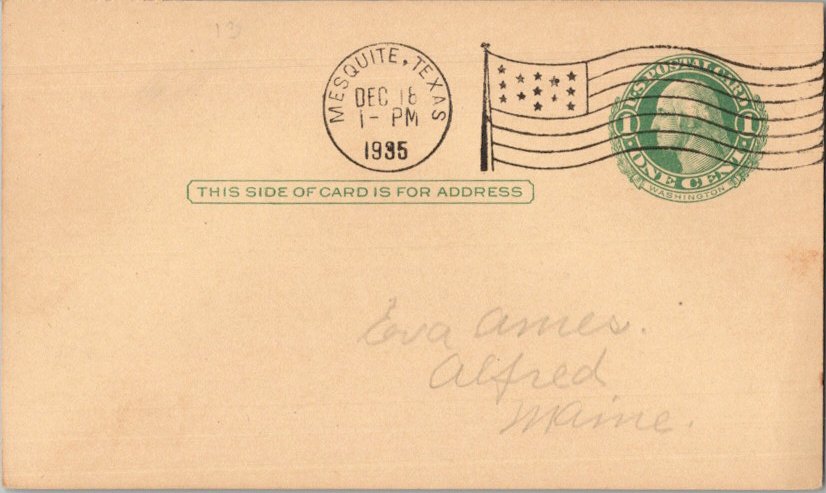 13
MESQUITE, TEXAS
DEC 18
1- PM
1935
U.S. POSTAL CARD
1 1
ONE CENT
WASHINGTON
THIS SIDE OF CARD IS FOR ADDRESS
Eva Ames.
Alfred
Maine.